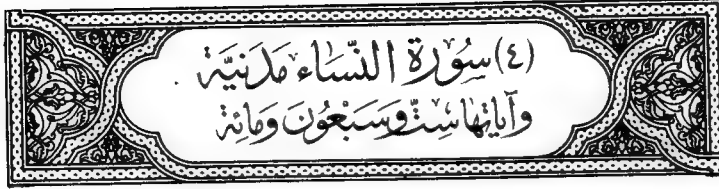 (٤) سُورَة النِّسَاء مَدَنِيَّة
وَآيَاتُهَا سِتٌّ وَسَبْعُونَ وَمِائَة